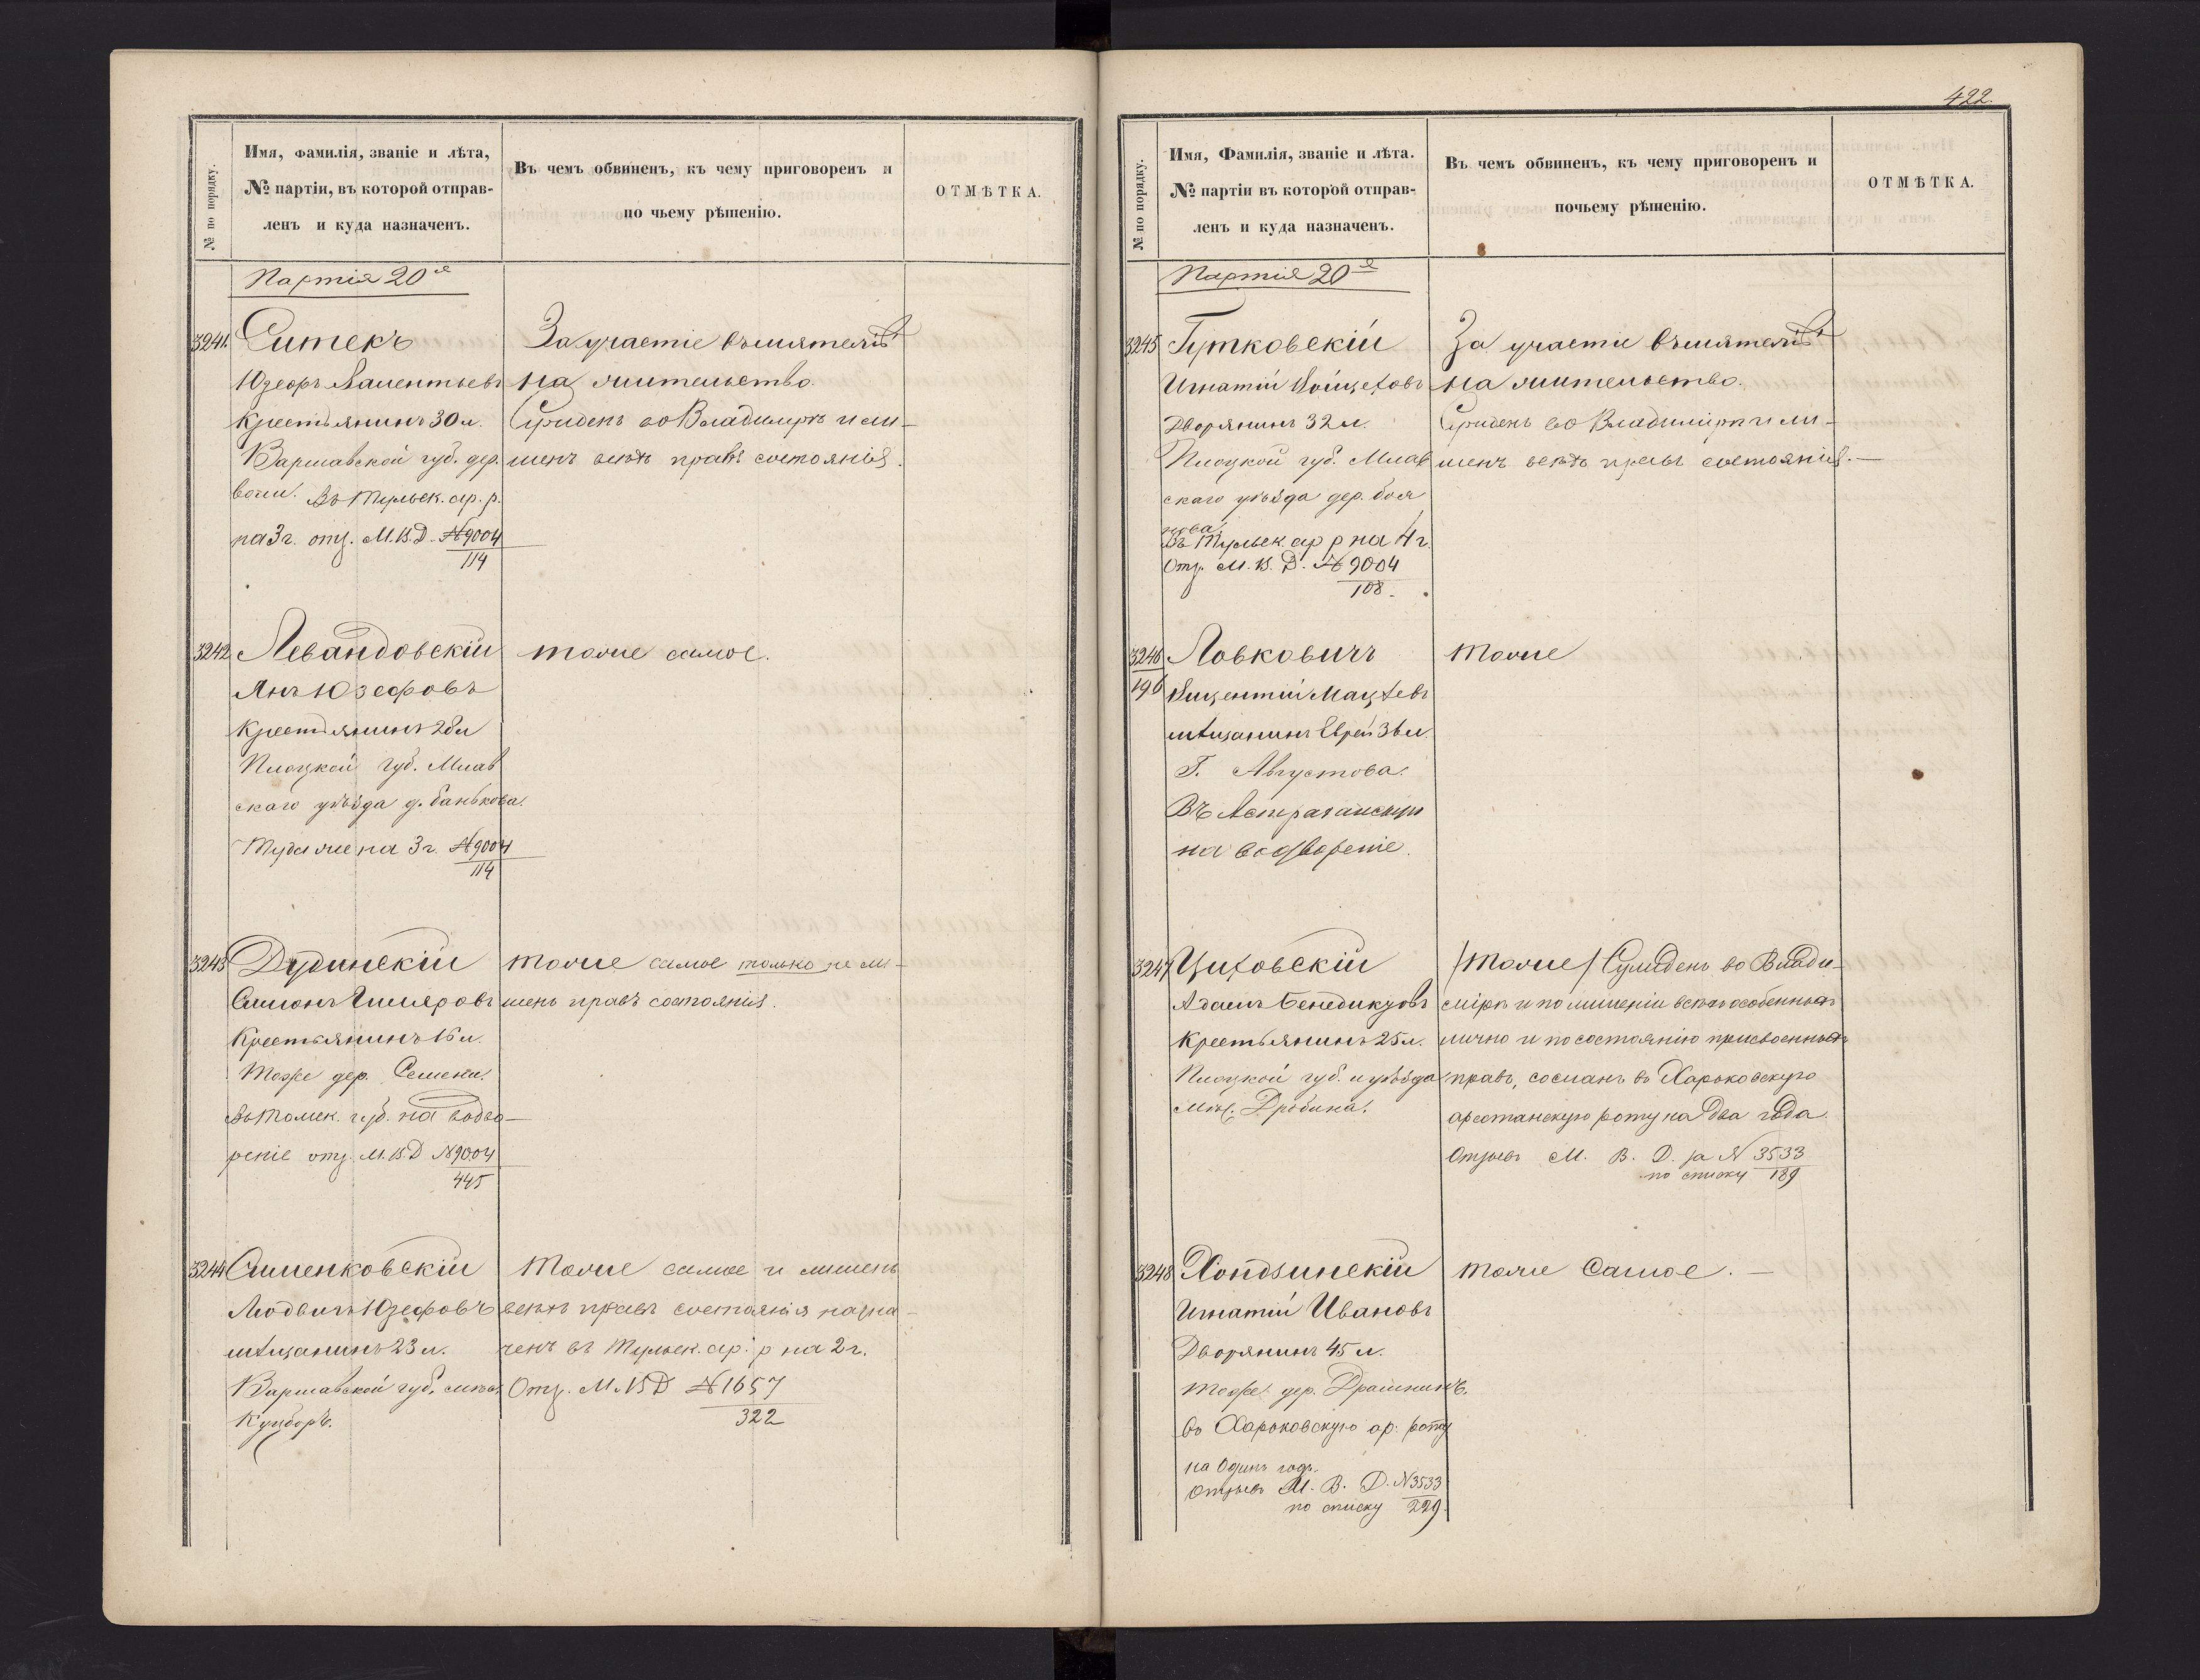 № по порядку.
Имя, фамилія, званіе и лѣта,
№ партіи, въ которой отправ-
ленъ и куда назначенъ.
Въ чемъ обвиненъ, къ чему приговоренъ и
по чьему рѣшенію.
ОТМѢТКА.
Партія 20я
3241. Ситекъ
Юзефъ Валентьевъ
Крестьянинъ 30 л.
Варшавской губ. дер.
Въ Тульск. ар. р.
на 3 г. отз. М.В.Д. №9004
114
За участіе въ мятежѣ
на жительство.
Сужденъ во Владимірѣ и ли-
шенъ всѣхъ правъ состоянія.
3242 Левандовскій
Янъ Юзефовъ
Крестьянинъ 28 л
Плоцкой губ. Млав
скаго уѣзда д. Банькова.
Туда же на 3 г. №9004
114
тоже самое.
3243 Дудинскій
Крестьянинъ 16 л.
Тоже дер.
Въ Томск. губ. на водво-
реніе отз. М.В.Д №9004
445
тоже самое только не ли-
шенъ правъ состоянія.
3244 Сименковскій
Людвигъ Юзефовъ
мѣщанинъ 23 л.
Варшавской губ.
Тоже самое и лишенъ
всѣхъ правъ состоянія назна-
ченъ въ Тульск. ар. р на 2 г.
Отз. М.В.Д №1657
322
422.
№ по порядку.
Имя, Фамилія, званіе и лѣта.
№ партіи въ которой отправ-
ленъ и куда назначенъ.
Въ чемъ обвиненъ, къ чему приговоренъ и
почьему рѣшенію.
ОТМѢТКА.
Партія 20я
3245 Гутковскій
Игнатій Войцеховъ
Дворянинъ 32 л.
Плоцкой губ. Млав
скаго уѣзда дер. Боя
нова.
Въ Тульск. ар р на 4 г.
Отз. М.В.Д. №9004
108.
За участіе въ мятежѣ
на жительство.
Сужденъ во Владимірѣ и ли-
шенъ всѣхъ правъ состоянія.
3246 Ловковичъ
196 Винцентій Мацѣевъ
мѣщанинъ Еврей 36 л.
Г. Августова.
Въ Астраханскую
на водвореніе.
Тоже
3247 Циховскій
Адамъ Бенедиктовъ
Крестьянинъ 25 л.
Плоцкой губ. и уѣзда
мѣст. Дробина.
/Тоже/ Сужденъ во Влади-
мірѣ и по лишеніи всѣхъ особенныхъ
лично и по состоянію присвоенныхъ
правъ, сосланъ въ Харьковскую
арестанскую роту на два года.
Отзывъ М. В. Д. за № 3533
по списку 189
3248 Хондзинскій
Игнатій Ивановъ
Дворянинъ 45 л.
Тоже дер.
въ Харьковскую ар. роту
на Одинъ годъ.
Отзывъ М. В. Д. №3533
по списку 229.
тоже Самое.